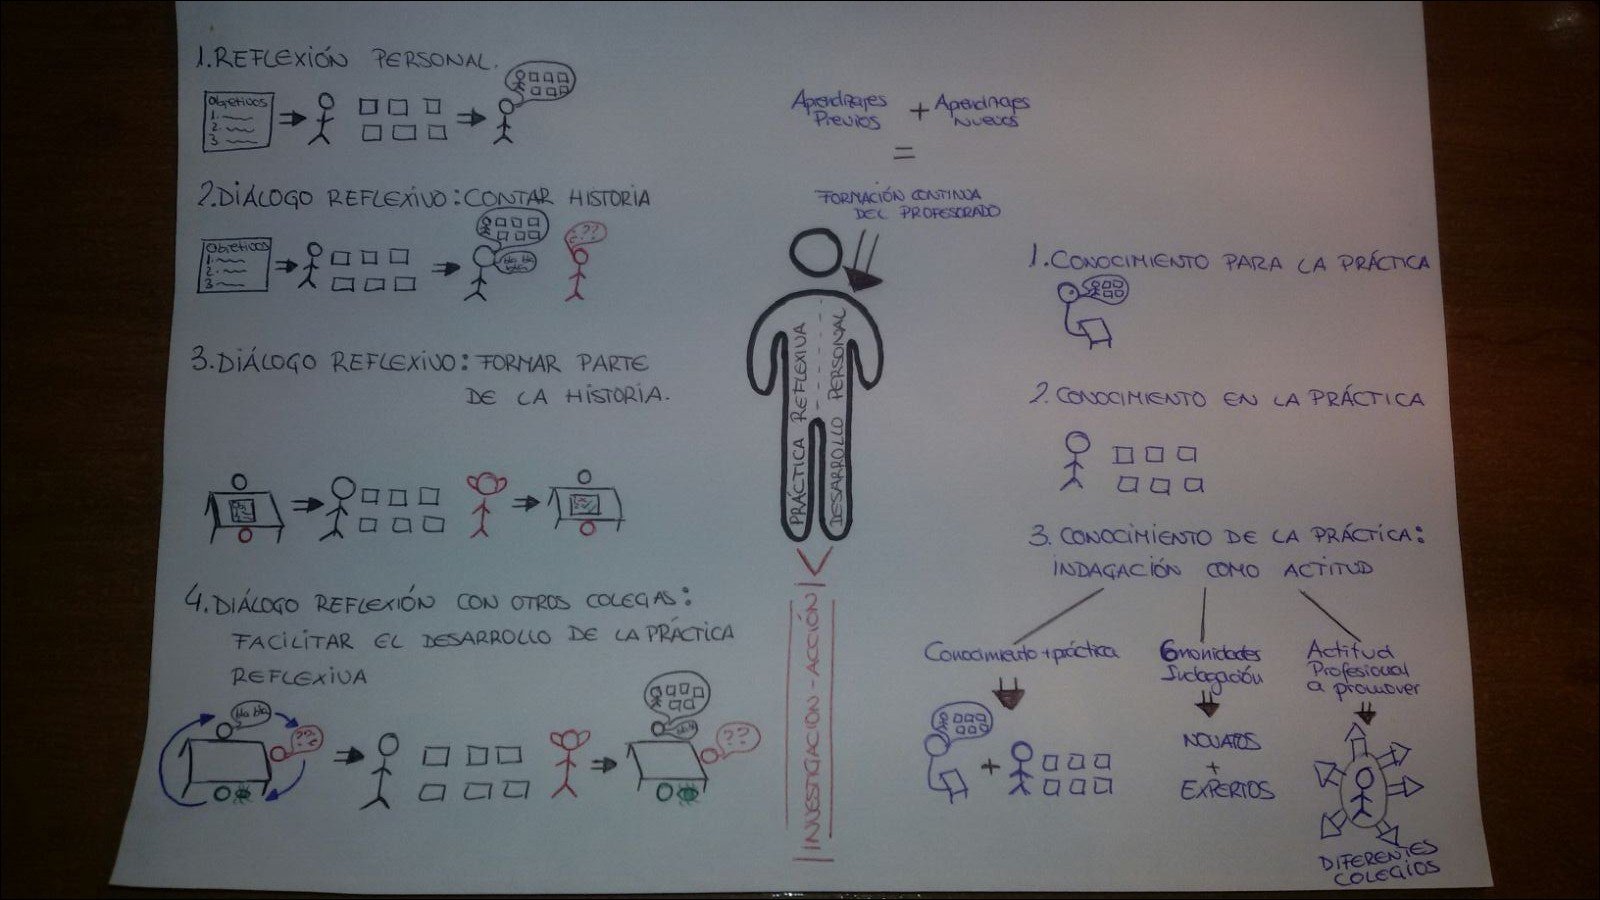 1. REFLEXIÓN PERSONAL.
Objetivos
1.
2.
3
2. DIÁLOGO REFLEXIVO: CONTAR HISTORIA
Objetivos
1.
2.
3
bla bla
blabla
¿??
3. DIÁLOGO REFLEXIVO: FORMAR PARTE
DE LA HISTORIA.
4. DIÁLOGO REFLEXIÓN CON OTROS COLEGAS:
FACILITAR EL DESARROLLO DE LA PRÁCTICA
REFLEXIVA
bla bla
??
??
Aprendizajes
Previos
+
Aprendizajes
nuevos
=
FORMACIÓN CONTINUA
DEL PROFESORADO
PRÁCTICA REFLEXIVA
DESARROLLO PERSONAL
INVESTIGACIÓN-ACCIÓN
1. CONOCIMIENTO PARA LA PRÁCTICA
2. CONOCIMIENTO EN LA PRÁCTICA
3. CONOCIMIENTO DE LA PRÁCTICA:
INDAGACIÓN COMO ACTITUD
Conocimiento + práctica
+
Indagación
NOVATOS
+
EXPERTOS
Actitud
Profesional
a promover
DIFERENTES
COLEGIOS